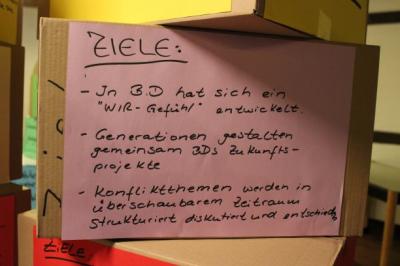 ZIELE:
- In BD hat sich ein
"WIR-Gefühl" entwickelt.
- Generationen gestalten
gemeinsam BDs Zukunfts-
projekte
- Konfliktthemen werden in
überschaubarem Zeitraum
strukturiert diskutiert und entschieden
ZIELE